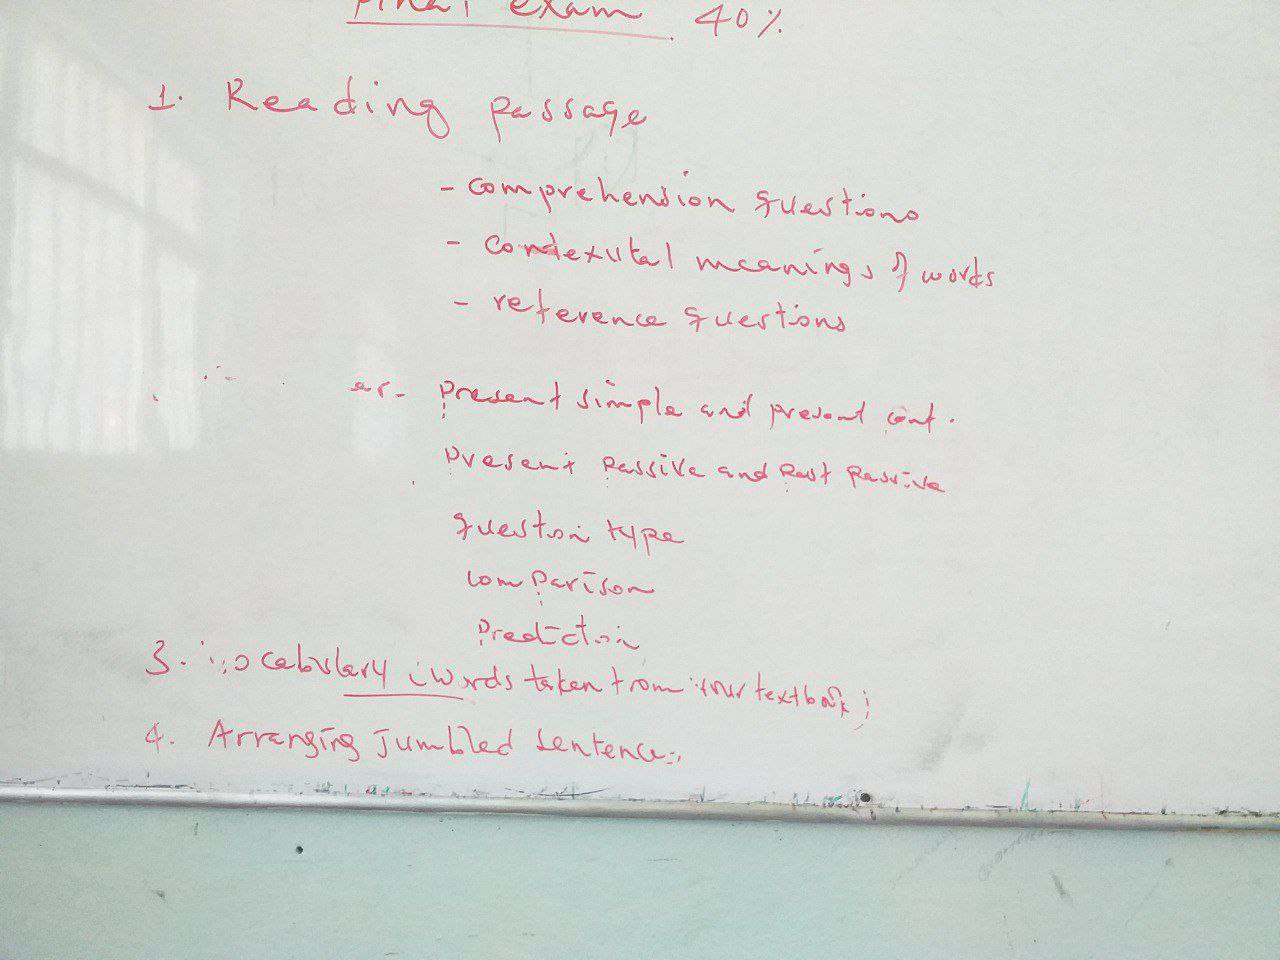 Final exam 40%
1. Reading passage
- comprehension questions
- contexutal meanings of words
- reference questions
ar- present simple and present cont.
present passive and past passive
question type
comparison
prediction
3. vocabulary (words taken from your textbook)
4. Arranging jumbled sentences